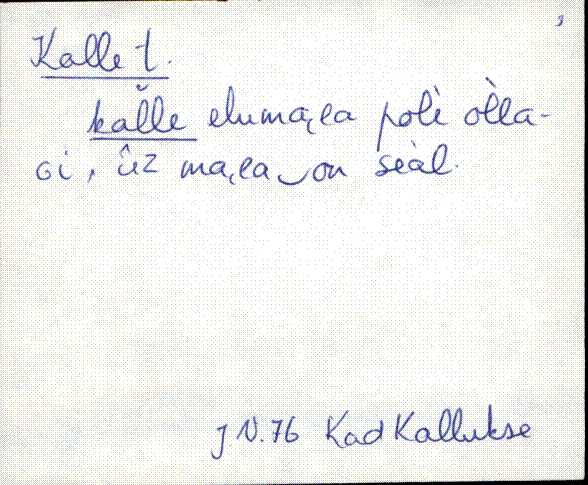 Kalle t.
kal̆le elumaj̨a polè òlla-
gi, ûz maj̨a‿on seàl.
J N.76 Kad Kallukse